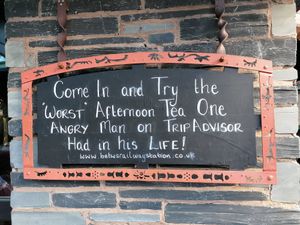 Come In and Try the
'Worst' Afternoon Tea One
Angry Man on TripAdvisor
Had in his Life!
www.betwsrailwaystation.co.uk